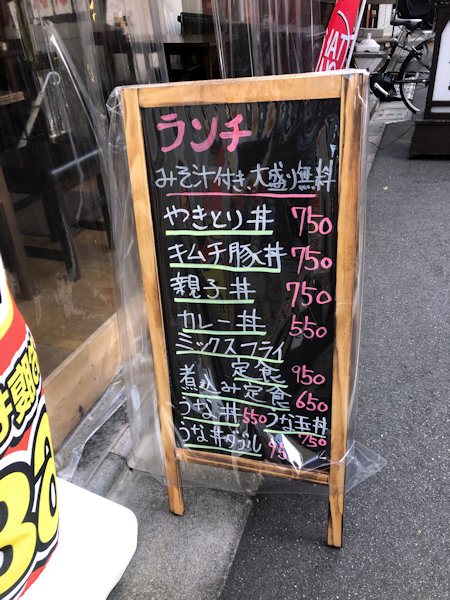 ランチ
みそ汁付き、大盛り無料
やきとり丼 750
キムチ豚丼 750
親子丼 750
カレー丼 550
ミックスフライ
定食 950
煮込み定食 650
うな丼 550 うな玉丼 750
うな丼ダブル